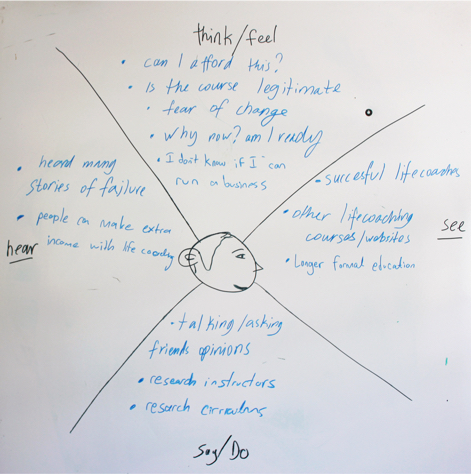 think/feel
• can I afford this?
• Is the course legitimate
• fear of change
• Why now? am I ready
• I don't know if I can
run a business
• heard many
stories of failure
• people can make extra
income with life coaching
hear
• succesful lifecoaches
• other lifecoaching
courses/websites
• Longer formal education
see
• talking/asking
friends opinions
• research instructors
• research
Say/Do